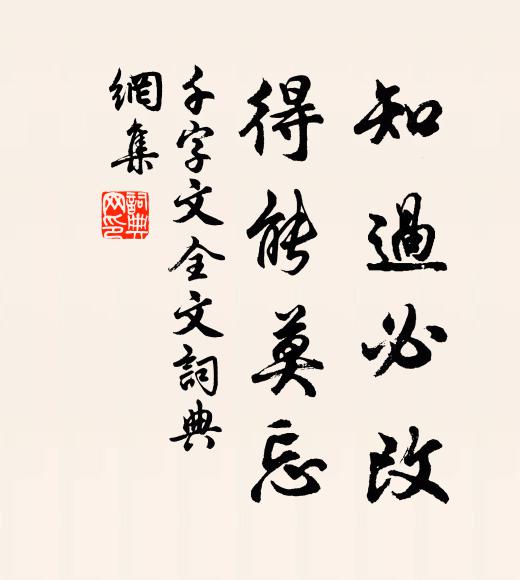 知過必改
得能莫忘
千字文全文詞典
網集
詞典網印